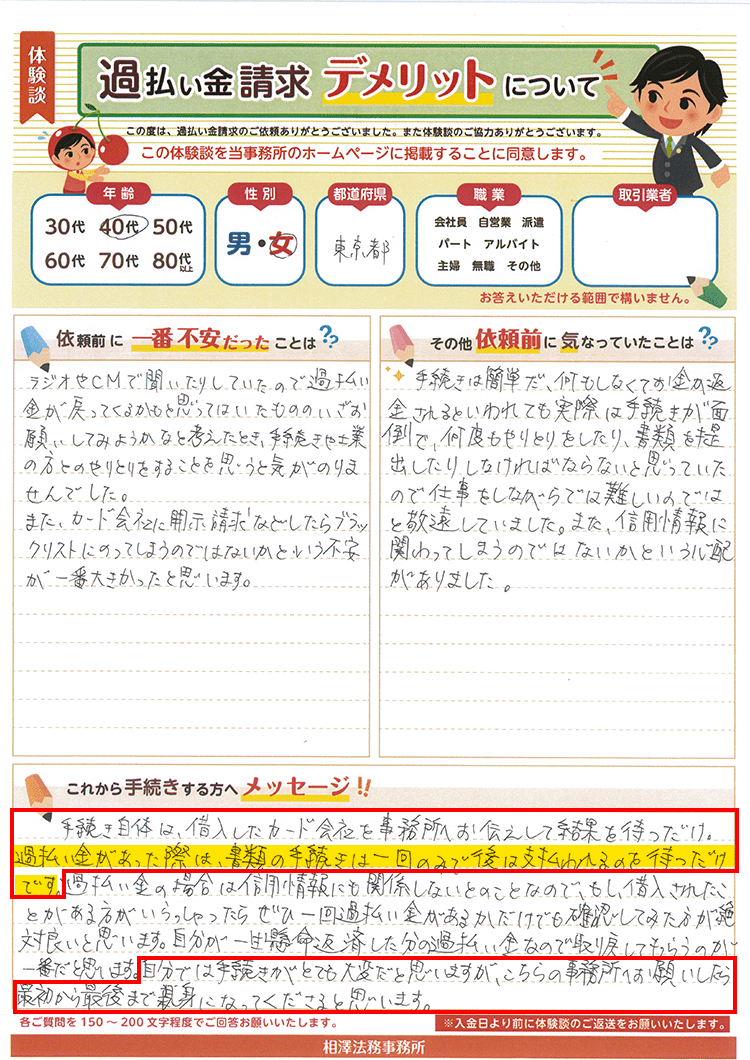 体験談
過払い金請求 デメリットについて
この度は、過払い金請求のご依頼ありがとうございました。また体験談のご協力ありがとうございます。
この体験談を当事務所のホームページに掲載することに同意します。
年齢
30代 40代 50代
60代 70代 80代以上
性別
男・女
都道府県
東京都
職業
会社員 自営業 派遣
パート アルバイト
主婦 無職 その他
取引業者
お答えいただける範囲で構いません。
依頼前に 一番不安だった ことは??
ラジオやCMで聞いたりしていたので過払い
金が戻ってくるかもと思ってはいたもののいざお
願いしてみようかなと考えたとき、手続きや士業
の方とのやりとりをすることを思うと気がのりま
せんでした。
また、カード会社に開示請求などしたらブラッ
クリストにのってしまうのではないかという不安
が一番大きかったと思います。
その他 依頼前に気なっていたことは??
手続きは簡単だ、何もしなくてお金が返
金されるといわれても実際は手続きが面
倒で、何度もやりとりをしたり、書類を提
出したりしなければならないと思っていた
ので仕事をしながらでは難しいのでは
と敬遠していました。また、信用情報に
関わってしまうのではないかという心配
がありました。
これから手続きする方へ メッセージ!!
手続き自体は、借入したカード会社を事務所へお伝えして結果を待つだけ。
過払い金があった際は、書類の手続きは一回のみで後は支払われるのを待つだけ
です。過払い金の場合は信用情報にも関係しないとのことなので、もし、借入されたこ
とがある方がいらっしゃったらぜひ一回過払い金があるかだけでも確認してみた方が絶
対良いと思います。自分が一生懸命返済した分の過払い金なので取り戻してもらうのが
一番だと思います。自分では手続きがとても大変だと思いますが、こちらの事務所へお願いしたら
最初から最後まで親身になってくださると思います。
各ご質問を150～200文字程度でご回答お願いいたします。
※入金日より前に体験談のご返送をお願いいたします。
相澤法務事務所